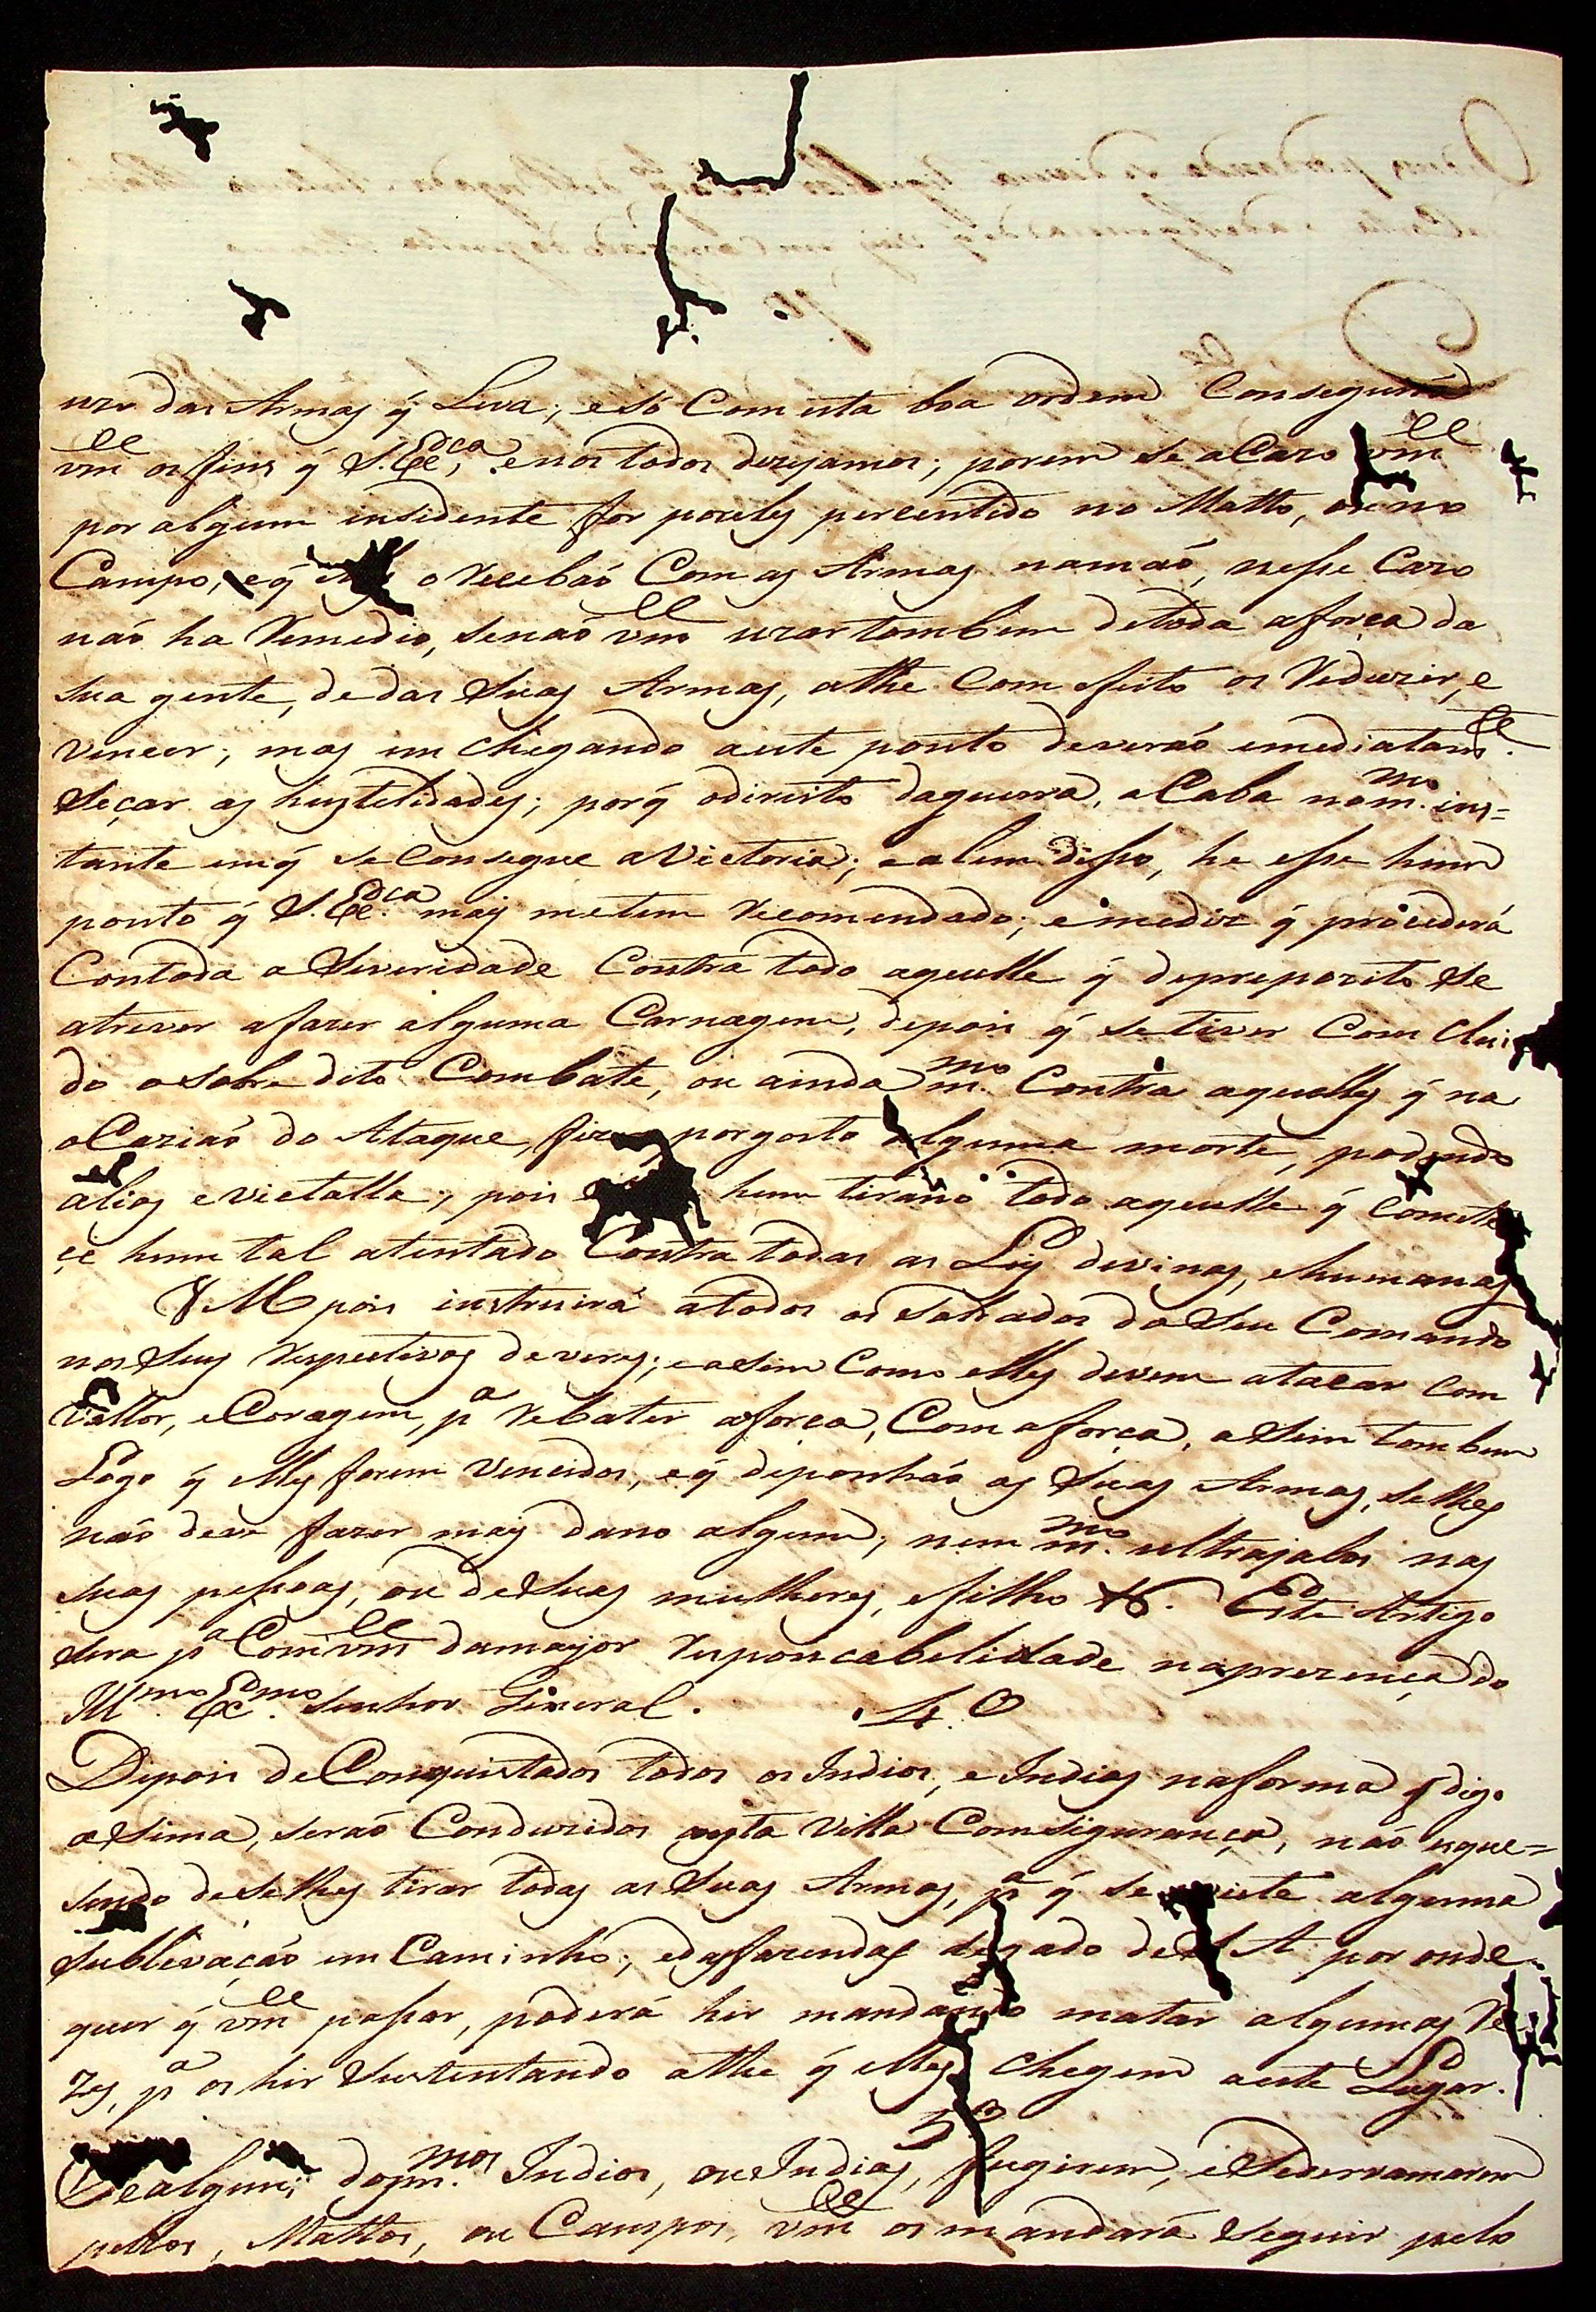 uzo das Armas q̃ Leva; e só Com esta boa ordem Conseguirá
vm.ce os fins q̃ S. Ex.ca, e nos todos dezejamos; porem se a Cazo vm.ce
por algum insidente for por eles percentido no Matto, ou no
Campo, e q̃ o Recebaõ Com as Armas na maõ, nesse Cazo
naõ ha Remedio, senaõ vm.ce uzar tambem de toda a força da
sua gente, e das Suas Armas, athe Com efeito os Reduzir, e
vencer; mas em chegando a este ponto deveraõ imediatam.te
Seçar as hustelidades; porq̃ o direito da guerra, a Caba no m.mo ins=
tante em q̃ se Consegue a Victoria; e alem disso, he esse hum
ponto q̃ S. Ex.ca mais me tem Recomendado; e me diz q̃ procederá
Com toda a Severidade Contra todo aquelle q̃ de preposito Se
atrever a fazer alguma Carnagem, depois q̃ se tiver Com Clui
do o sobre dito Combate, ou ainda m.mo Contra aquelles q̃ na
o Caziaõ do Ataque, por gosto alguma morte, podendo
alias evietalla; pois hum tirano todo aquelle q̃ Comete
ce hum tal atentado Contra todas as Leys devinas, e humanas
V M pois instruirá a todos os Soldados do Seu Comando
nos Seus Respectivos deveres; e aSim Como elles devem atacar Com
Vallor, e Coragem, p.a Rebater a força, Com a força, aSim tambem
Logo q̃ elles forem Vencidos, e q̃ deponhaõ as Suas Armas, Se lhes
naõ deve fazer mais dano algum; nem m.mo ultrajalos nas
Suas pessoas, ou de Suas mulheres, e filhos &. Este Artigo
Sera p.a Com vm.ce da mayor Responcabelidade na prezença do
Ill.mo Ex.mo Senhor General. 4.º
Depois de Conquistados todos os Indios, e Indias na forma q̃ digo
aSima, seraõ Conduzidos a esta Villa Com Sigurança, naõ esque=
sendo de Se lhes tirar todas as Suas Armas, p.a q̃ se evite alguma
Sublevaçaõ em Caminho; e das fazendas de gado de S A por onde
quer q̃ vm.ce passar, poderá hir mandando matar algumas Re
zes, p.a os hir Sustentando athe q̃ elles chegem a este Lugar.
5.º
Se alguns dos m.mos Indios, ou Indias, fugirem, e Se derramarem
pellos, Mattos, ou Campos, vm.ce os mandará Seguir pelo